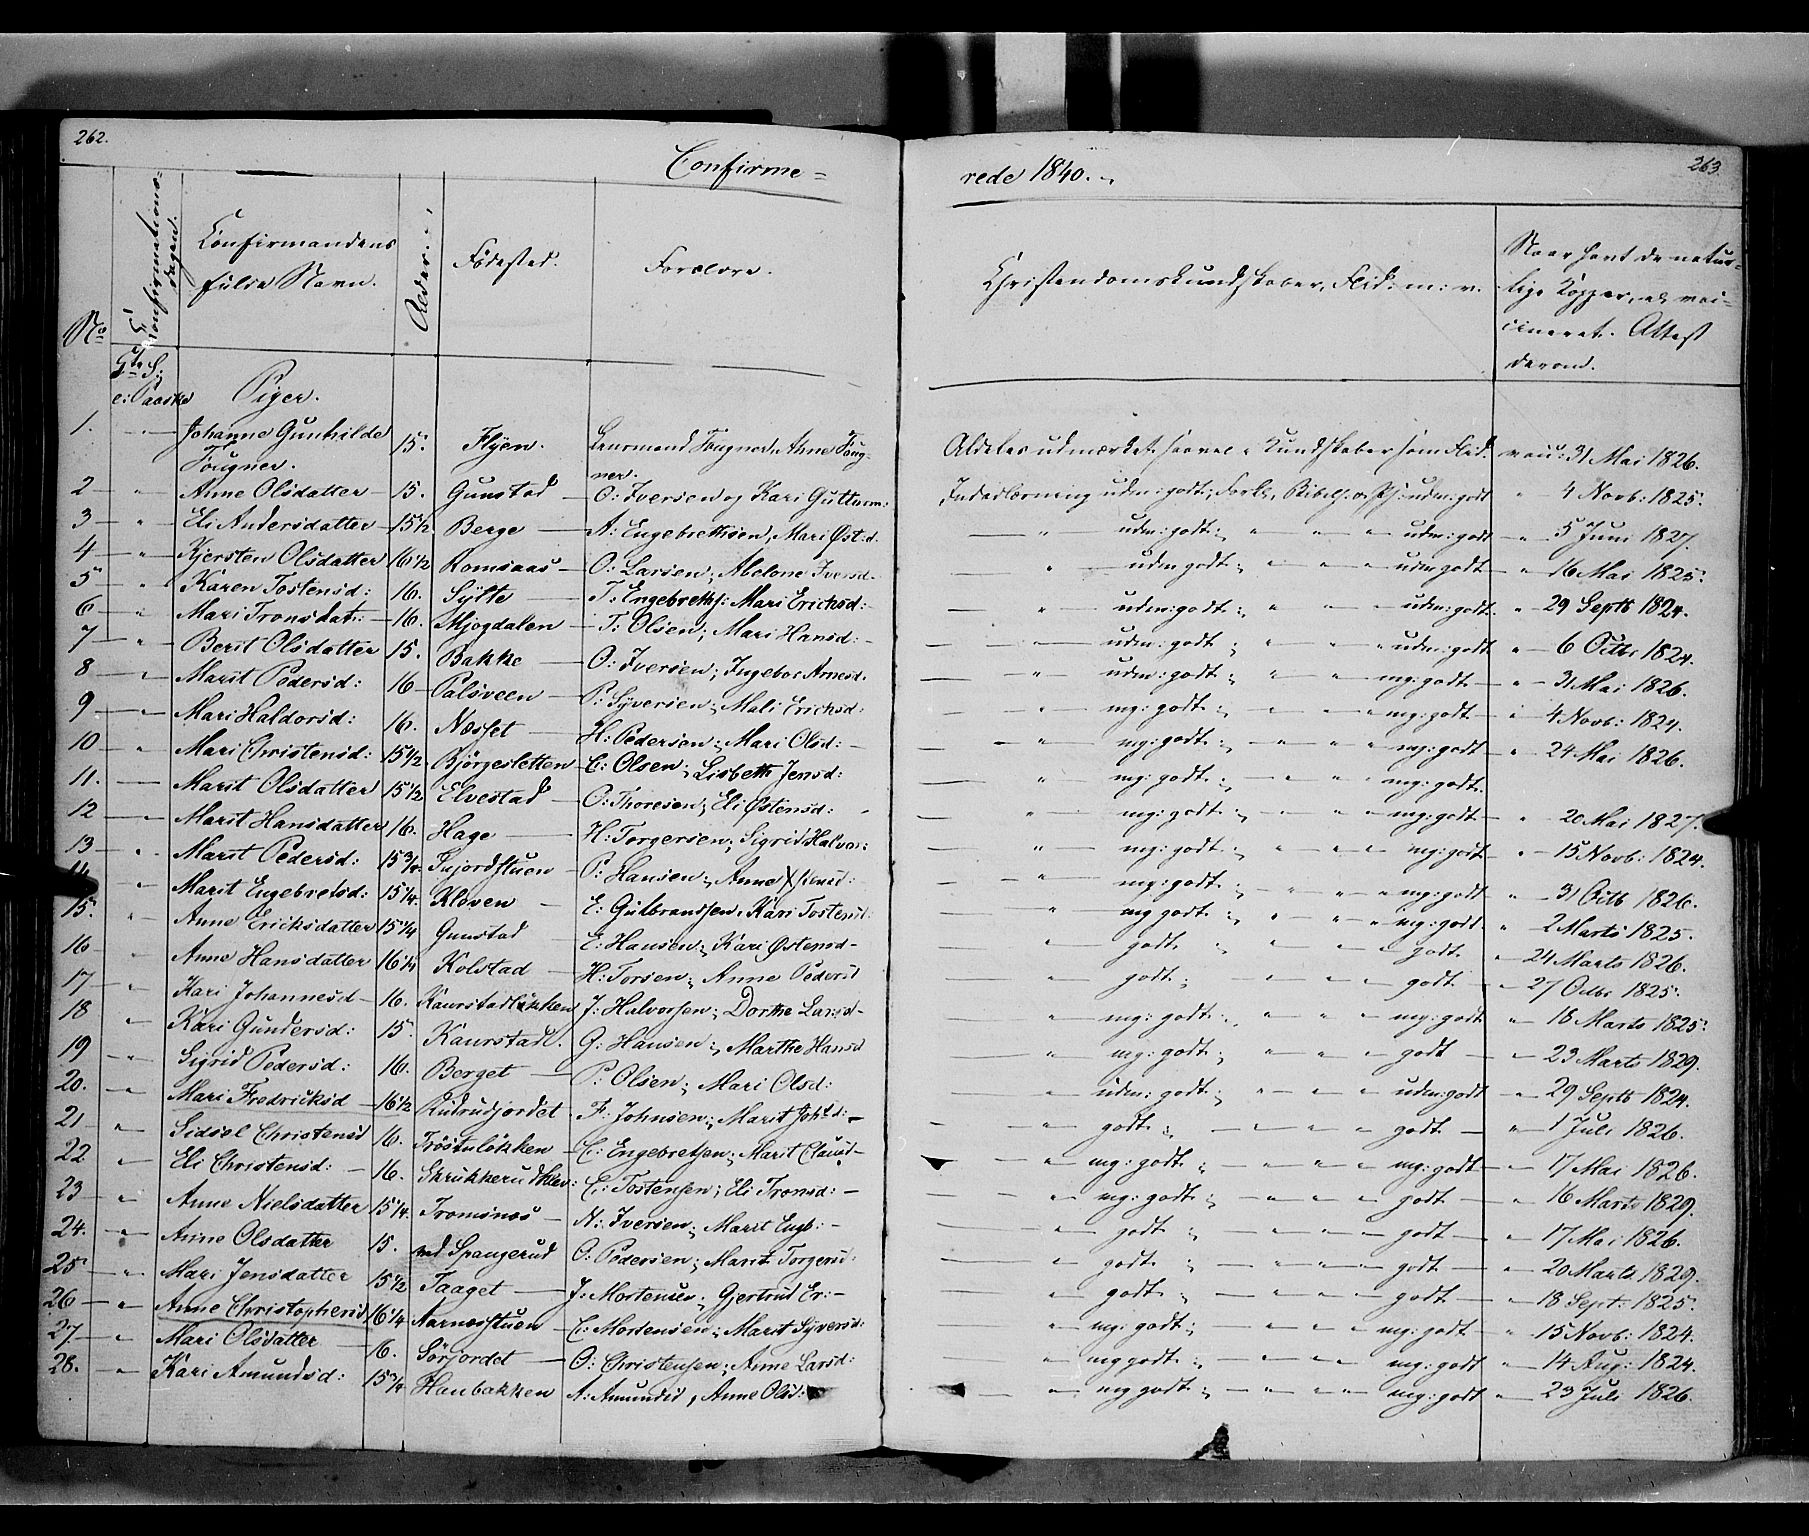 262.
Confirme=
No
Confirmations-
dagen.
Confirmandens
fulde Navn.
Alder.
Fødested.
Forældre.
5te S:
e: Paaske
Piger.
1. Johanne Gunhilde 15. Flyen. Leurmand Tougner, Anne Toug-
Tougner. ner.
2 — " Anne Olsdatter — 15. Gunstad — O: Iversen og Kari Gutturm:
3 — " Eli Andersdatter — 15 1/2 Berge — A: Engebrethsen, Mari Øst:d.
4 — " Kjersten Olsdatter 16 1/2 Romsaas — O: Larsen; Abelone Iversd.
5 " Karen Tostensd: 16. Sylte — T: Engebreths: Mari Ericksd:
6 — " Mari Tronsdat: — 16. Skjogdalen — T: Olsen; Mari Hansd: -
7 — " Berit Olsdatter 15. Bakke — O: Iversen; Ingebor Arnesd.
8 — Marit Pedersd: 16 — Palsveen — P: Syversen; Mali Ericksd:
9 — Mari Haldorsd: 16. Næsset — H: Pedersen; Mari Olsd: -
10 — " Mari Christensd: 15 1/2 Bjørgesletten C: Olsen; Lisbeth Jensd:
11. — Marit Olsdatter 15 1/2 Elvestad — O: Thoresen; Eli Østensd:
12 — Marit Hansdatter 16. Hage — H: Torgersen; Sigrid Halvor:
13 — " Marit Pedersd: 15 3/4 Sujordstuen — P: Hansen; Anne
14 " Marit Engebretsd: 15 1/4 Kleven — E: Gulbrandsen, Kari Tostensd:
15. " Anne Ericksdatter 15 1/4 Gunstad — E: Hansen; Kari Østensd-
16 — " Anne Hansdatter 16 1/4 Kolstad — H: Torsen; Anne Pedersd
17 — " Kari Johannesd — 16. Kaurstadløkken J: Halvorsen; Dorthe Larsd-
18 " Kari Gundersd: 15. Kaurstad. G: Hansen; Marthe Hansd
19 — " Sigrid Pedersd: 16. Berget — P: Olsen; Mari Olsd:
20. — " Mari Fredricksd — 16 1/2 Rudrudjordet F: Johnsen; Marit Johsd: -
21 — " Sidsel Christensd 16. Trøstuløkken — C: Engebretsen; Marit Clausd-
22 " Eli Christensd: — 16. Skrukkerudklev: C: Tostensen; Eli Tronsd: —
23 — " Anne Nielsdatter 15 1/4. Tromsnes — N: Iversen; Marit Engb: -
24. — " Anne Olsdatter 15. ved Spangerud O: Pedersen; Marit Torgersd:
25 — " Mari Jensdatter 15 1/2 Taaget — J: Mortensen; Gjertrud Er: -
26 — " Anne Christophersd 16 1/4 Aarnæsstuen — C: Mortensen; Marit Syversd:
27 — " Mari Olsdatter — 16. Sørjordet — O: Christensen; Anne Larsd:
28. " Kari Amundsd: 15 3/4 Haubakken A: Amundsd, Anne Olsd:
263.
rede 1840.
Christendomskundskaber, Flid: m: v.
Naar havt de natur-
lige Kopper, el vac-
cineret. Attest
derom.
Aldeles udmærket saavel i Kundskaber som Flid. vacc: 31 Mai 1826.
Indenadlæsning udm: godt; Forkl., Bibelh: o. Psj: udm: godt " 4 Novb: 1825.
— " udm: godt; " " " udm: godt — " 5 Juni 1827.
— " udm godt; " " " udm godt — " 16 Mai 1825.
— " udm: godt: " " " udm: godt. " 29 Septb 1824.
— " udm: godt; " " " udm: godt " 6 Octbr 1824.
— " udm: godt; " " " mg: godt — " 31 Mai 1826.
— " mg: godt: " " " mg: godt — " 4 Novb: 1824.
— " mg: godt: " " " mg: godt " 24 Mai 1826.
— " mg: godt; " " " mg: godt.
— " mg: godt; " " " mg: godt — " 20 Mai 1827.
— " mg: godt; " " " mg: godt — " 15 Novb: 1824.
— " mg: godt; " " " mg: godt " 31 Octb 1826.
— " mg godt: " " " mg: godt — " 2 Marts 1825.
— " godt; " " " godt. " 24 Marts 1826.
— " godt; " " " godt — " 27 Octbr 1825.
— " mg: godt; " " " mg: godt " 18 Marts 1825.
— " mg: godt; " " " godt — " 23 Marts 1829.
— " udm: godt; " " " udm: godt " 29 Septb 1824.
— " godt; " " " godt — " 1 Juli 1826.
" mg: godt; " " " mg: godt — " 17 Mai 1826.
— " mg: godt; " " " godt — " 16 Marts 1829.
— " godt; " " " godt — " 17 Mai 1826.
— " godt; " " " godt — " 20 Marts 1829.
— " godt; " " " godt — " 18 Sept: 1825.
— " mg: godt; " " " mg: godt — " 15 Novb: 1824.
— " mg godt; " " " mg: godt — " 14 Aug: 1824.
— " mg godt; " " " mg: godt — " 23 Juli 1826.